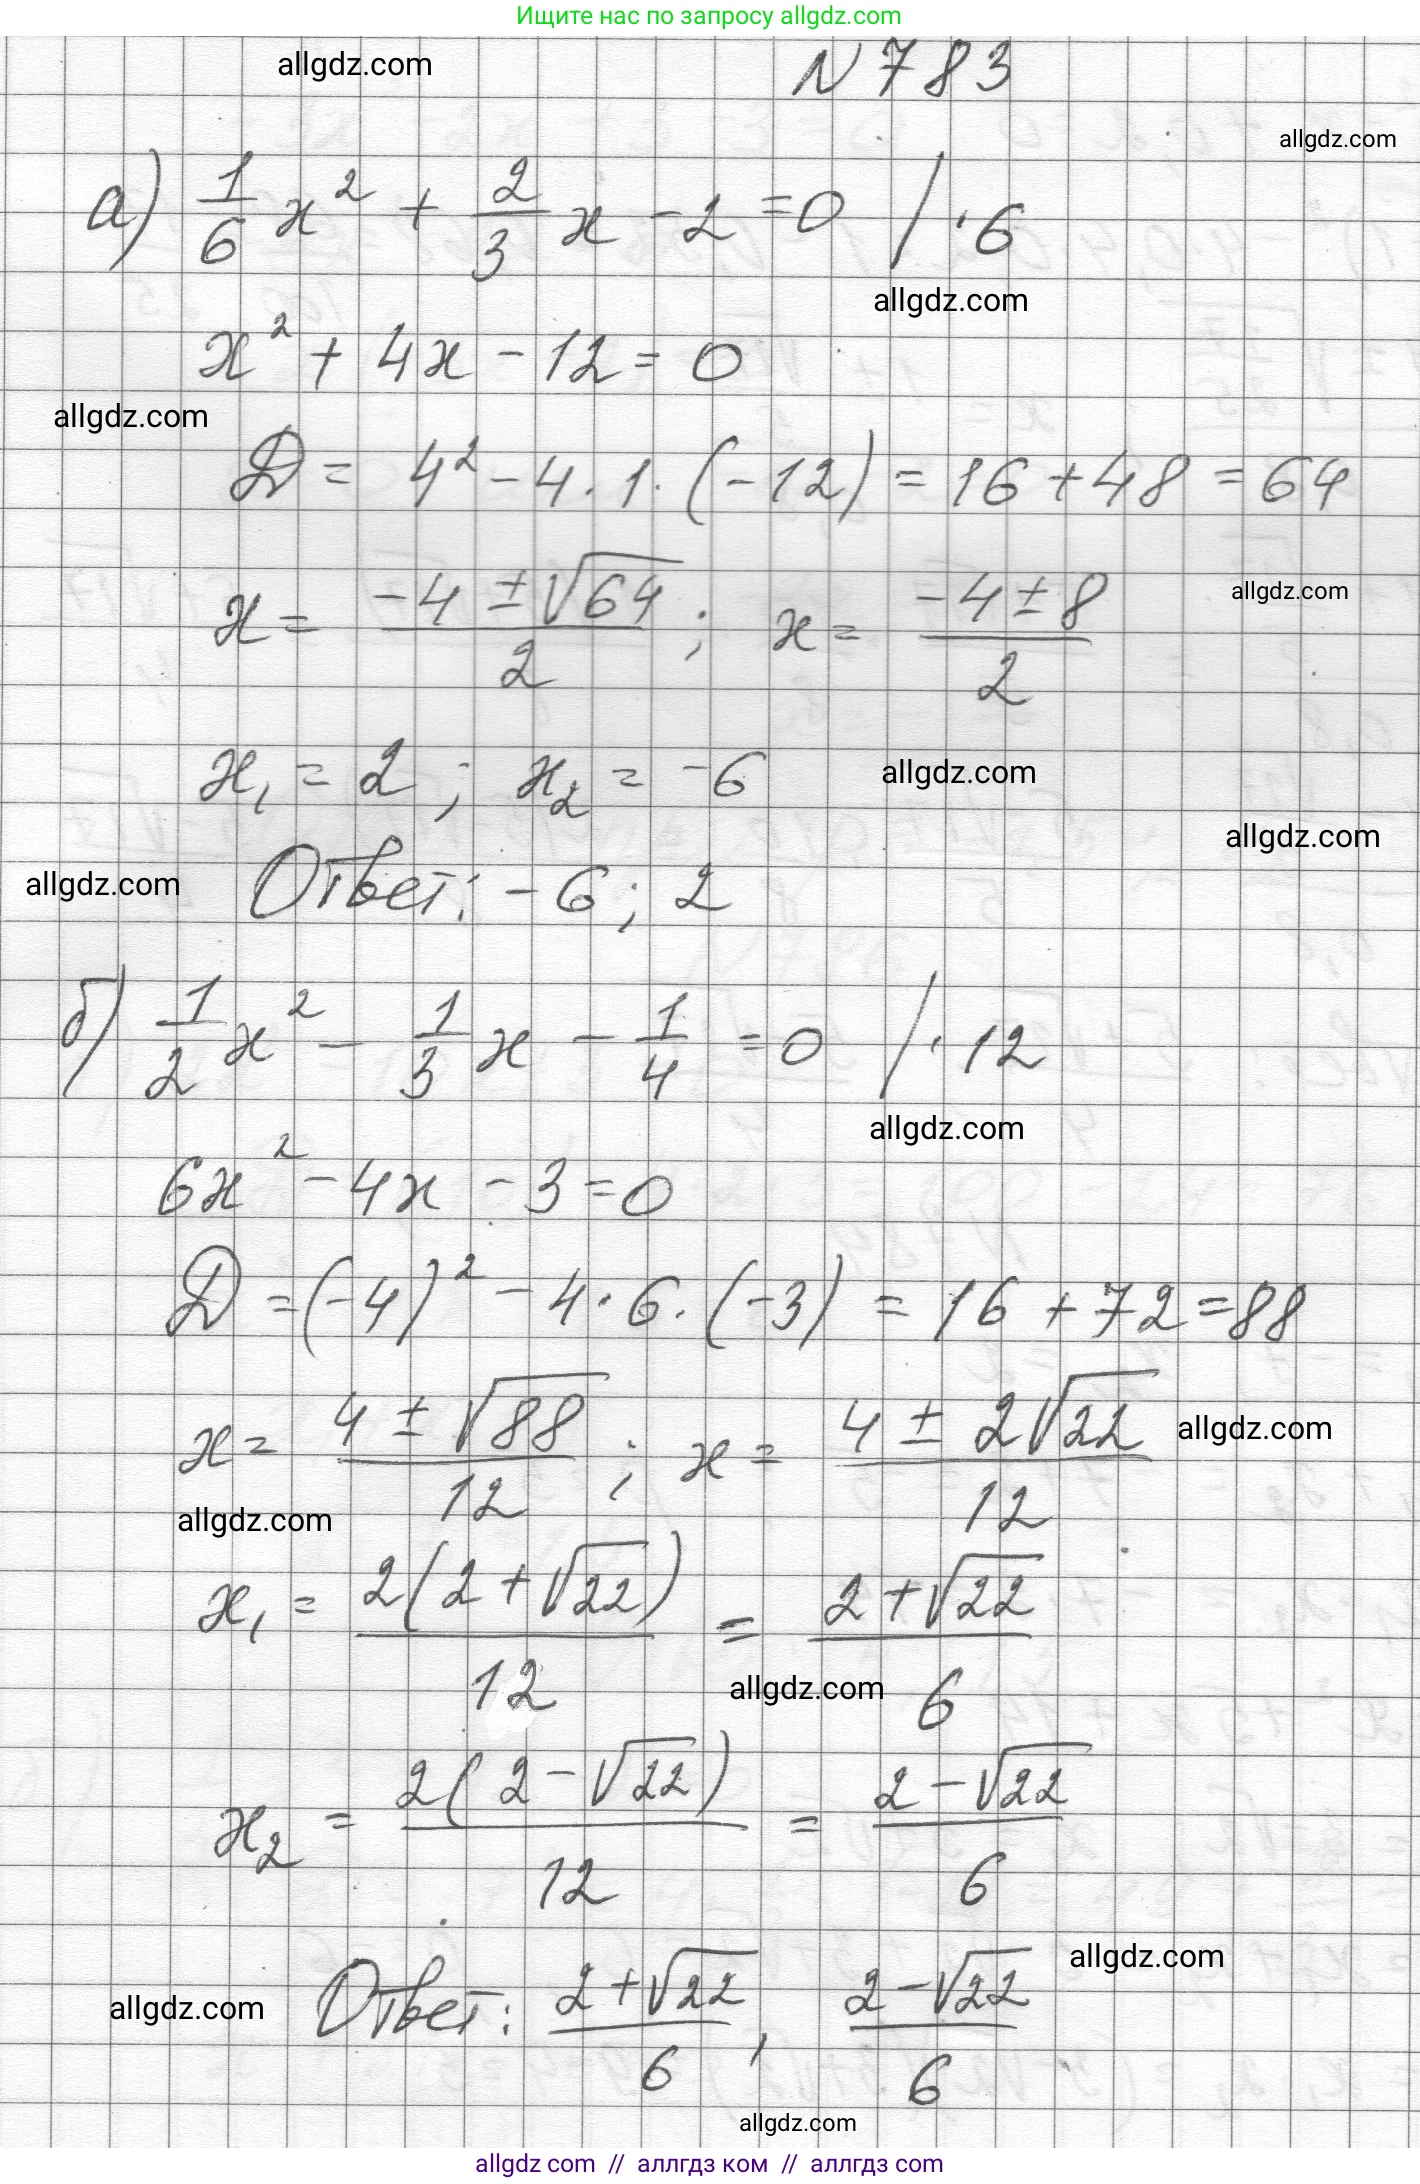 Ищите нас по запросу allgdz.com
allgdz.com
N 783
allgdz.com
а) 1/6 x² + 2/3 x - 2 = 0 / ·6
allgdz.com
x² + 4x - 12 = 0
allgdz.com
D = 4² - 4 · 1 · (-12) = 16 + 48 = 64
x = (-4 ± √64)/2 ; x = (-4 ± 8)/2
allgdz.com
x₁ = 2 ; x₂ = -6
allgdz.com
allgdz.com
allgdz.com
Ответ: -6 ; 2
б) 1/2 x² - 1/3 x - 1/4 = 0 / · 12
allgdz.com
6x² - 4x - 3 = 0
D = (-4)² - 4 · 6 · (-3) = 16 + 72 = 88
x = (4 ± √88)/12 ; x = (4 ± 2√22)/12
allgdz.com
allgdz.com
x₁ = 2(2 + √22)/12 = (2 + √22)/6
allgdz.com
x₂ = 2(2 - √22)/12 = (2 - √22)/6
allgdz.com
allgdz.com
Ответ: (2 + √22)/6 , (2 - √22)/6
allgdz.com
allgdz com // аллгдз ком // аллгдз com